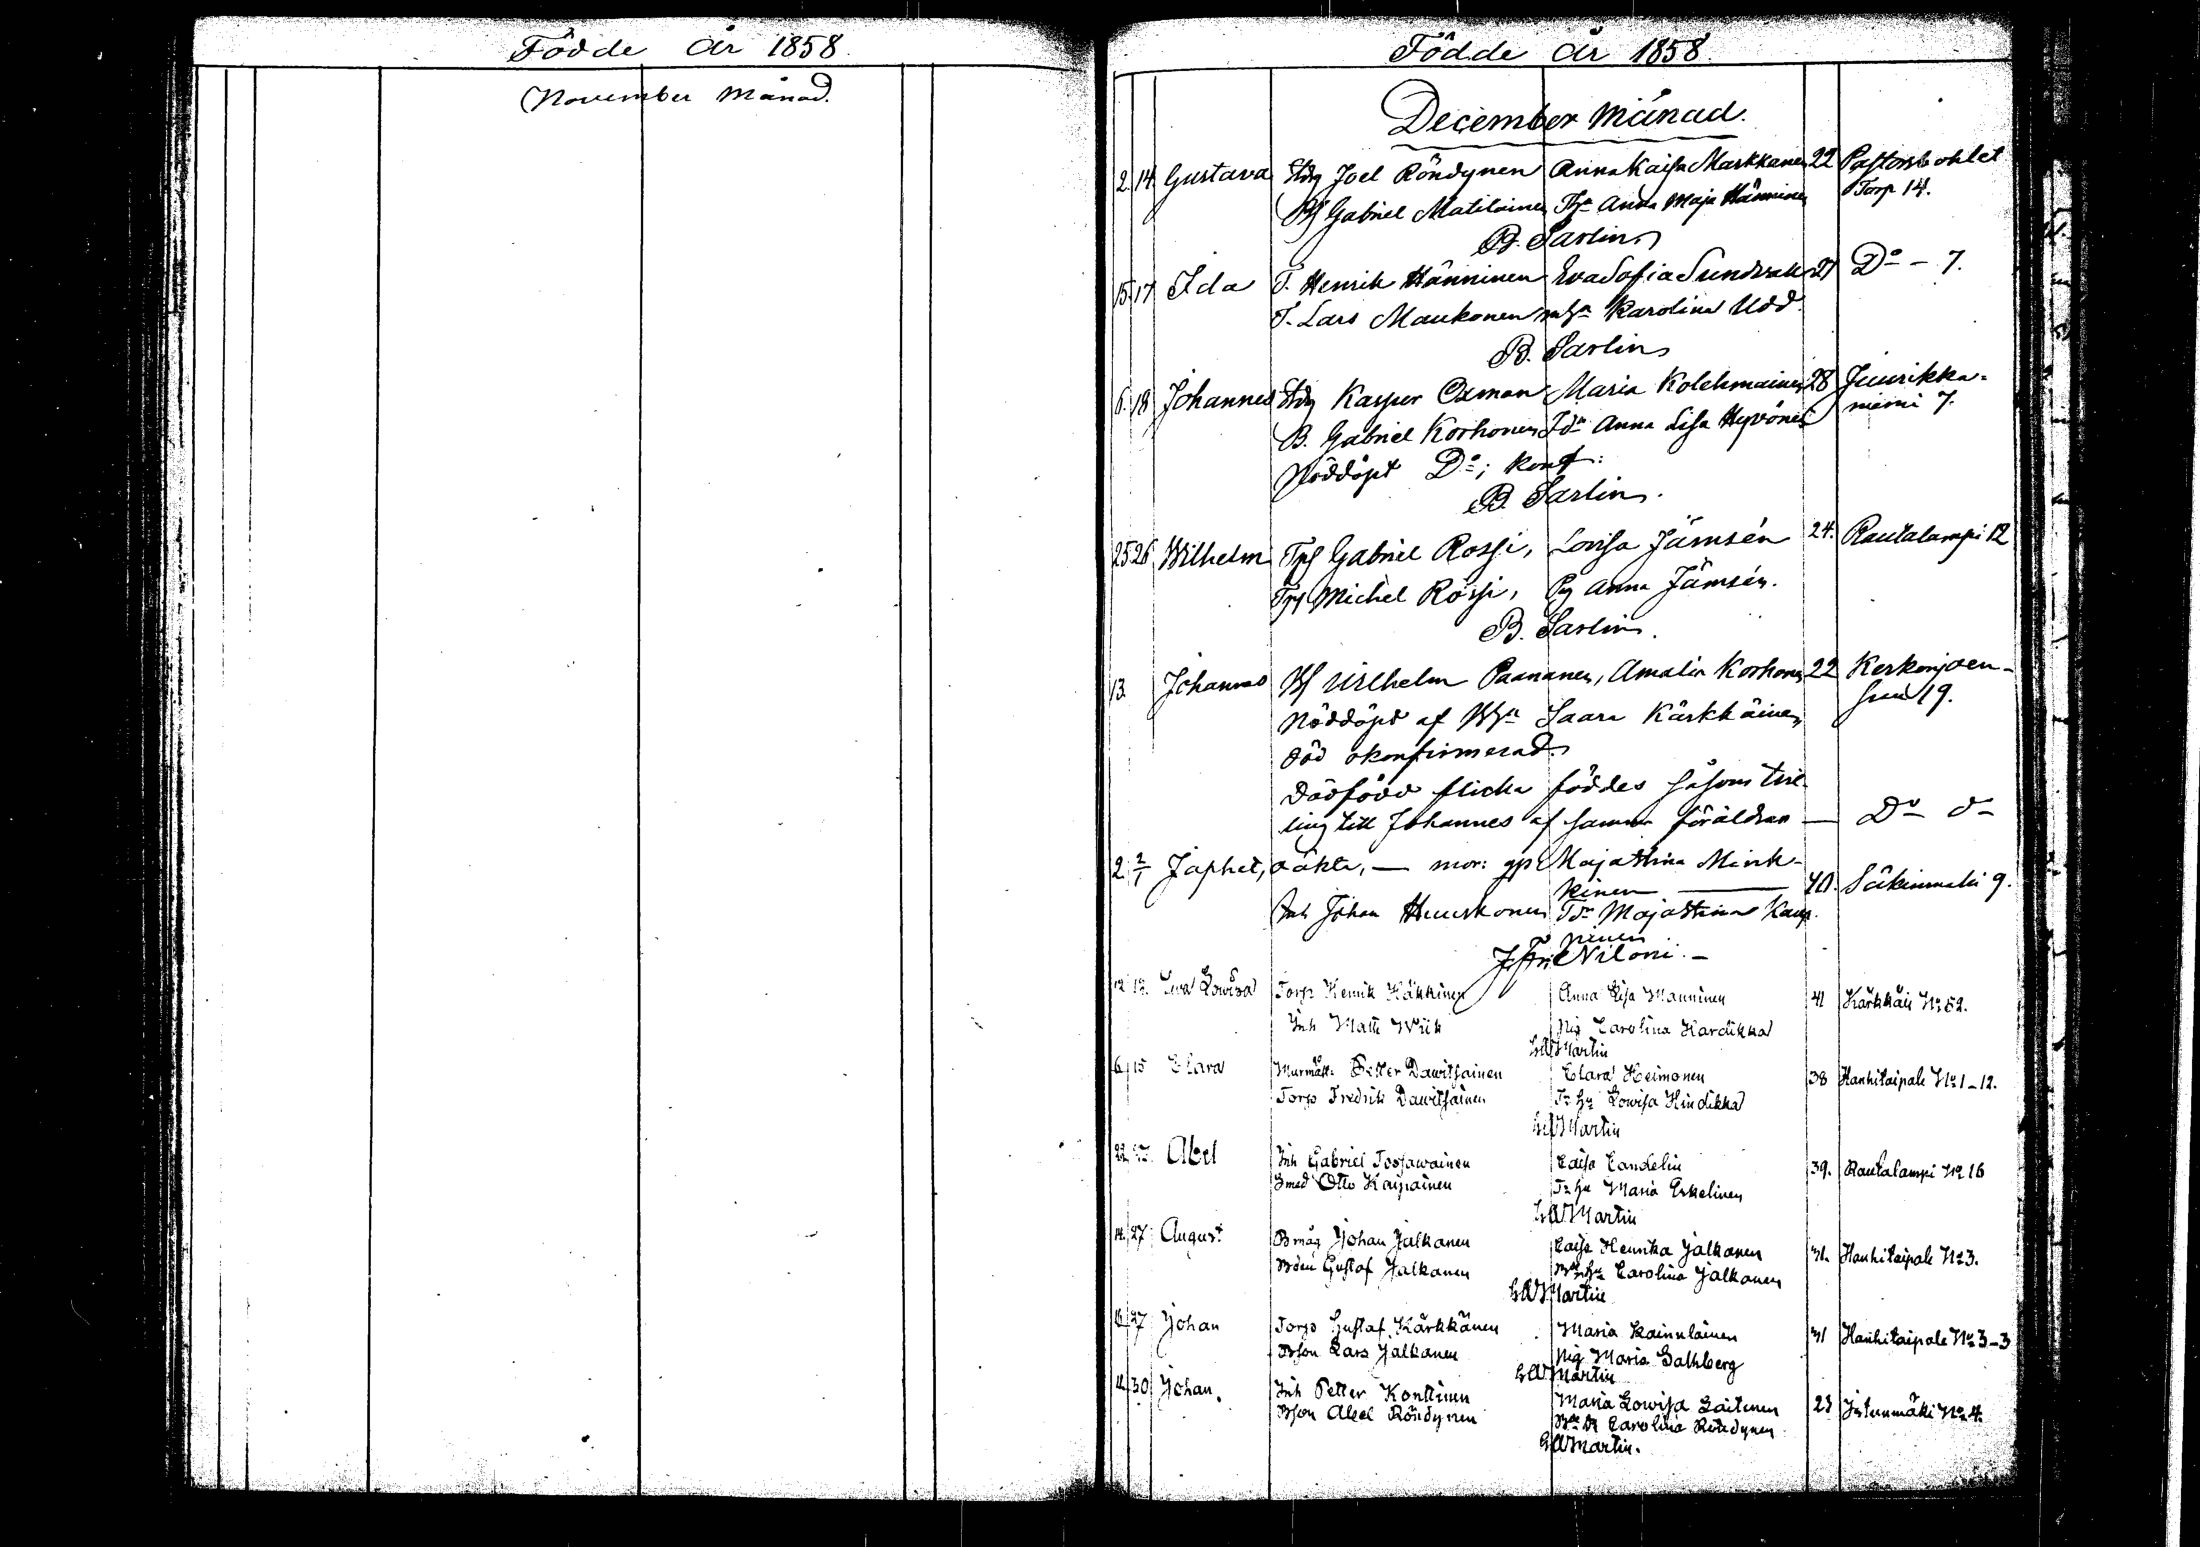 Födde år 1858.
November Månad.
Födde år 1858.
December Månad.
2. 14. Gustava Stdg Joel Röndynen Anna Kaisa Markkanen 22 Pastorsbohlet
Gabriel Matilainen Anna Maja Hänninen Torp 14.
B. Sarlin
15. 17 Ida T. Henrik Hänninen Eva Sofia Sundvall 27 Do – 7.
T. Lars Maukonen Karolina Udd.
B. Sarlin
6. 18 Johannes Stdg Kasper Oxman Maria Kolehmainen 28 Juurikka-
B. Gabriel Korhonen Tdr Anna Lisa Hyvönen niemi 7.
Nöddöpt Do; konf:
B. Sarlin.
25 26 Wilhelm Gabriel Rossi, Lovisa Jämsén 24. Rautalampi 12
Michel Rossi, Pg Anna Jämsén.
B. Sarlin.
13. Johannes Wilhelm Paananen, Amalia Korhonen 22 Kerkonjoen-
Nöddöpt af Saara Kärkkäinen, suu 19.
död okonfirmerad.
Dödfödd flicka föddes såsom tvil-
ling till Johannes af samma föräldrar — Do do
2 2/1 Japhet, oäkta, — mor: Maja Stina Mink-
kinen — 40. Säkinmäki 9.
Inh Johan Huuskonen Tdr Maja Stina Kaup-
pinen
Niloni. –
12 12. Eva Lowisa Torp Henrik Häkkinen Anna Lisa Manninen 41 Kärkkäis No 52.
Inh Matti Wiik Pig Carolina Hardikka
Martin
6 15 Clara Petter Dawitsainen Clara Heimonen 38 Hanhitaipale No 1–12.
Torp Fredrik Dawitsainen Lowisa Hindikka
Martin
22. Abel Inh Gabriel Tossawainen Caisa Candelin 39. Rautalampi No 16
Smed Otto Kaipainen Maria Eskelinen
Martin
14. 27 August Bmåg Johan Jalkanen Caisa Henrika Jalkanen 31. Hanhitaipale No 3.
Gustaf Jalkanen Carolina Jalkanen
Martin
16 27 Johan Torp Gustaf Kärkkänen Maria Kainulainen 31 Hanhitaipale No 3–3
Bson Lars Jalkanen Pig Maria Sahlberg
Martin
30 Johan. Inh Petter Konttinen Maria Lowisa Laitinen Istunmäki No 4.
Bson Abel Röndynen Carolina
Martin.